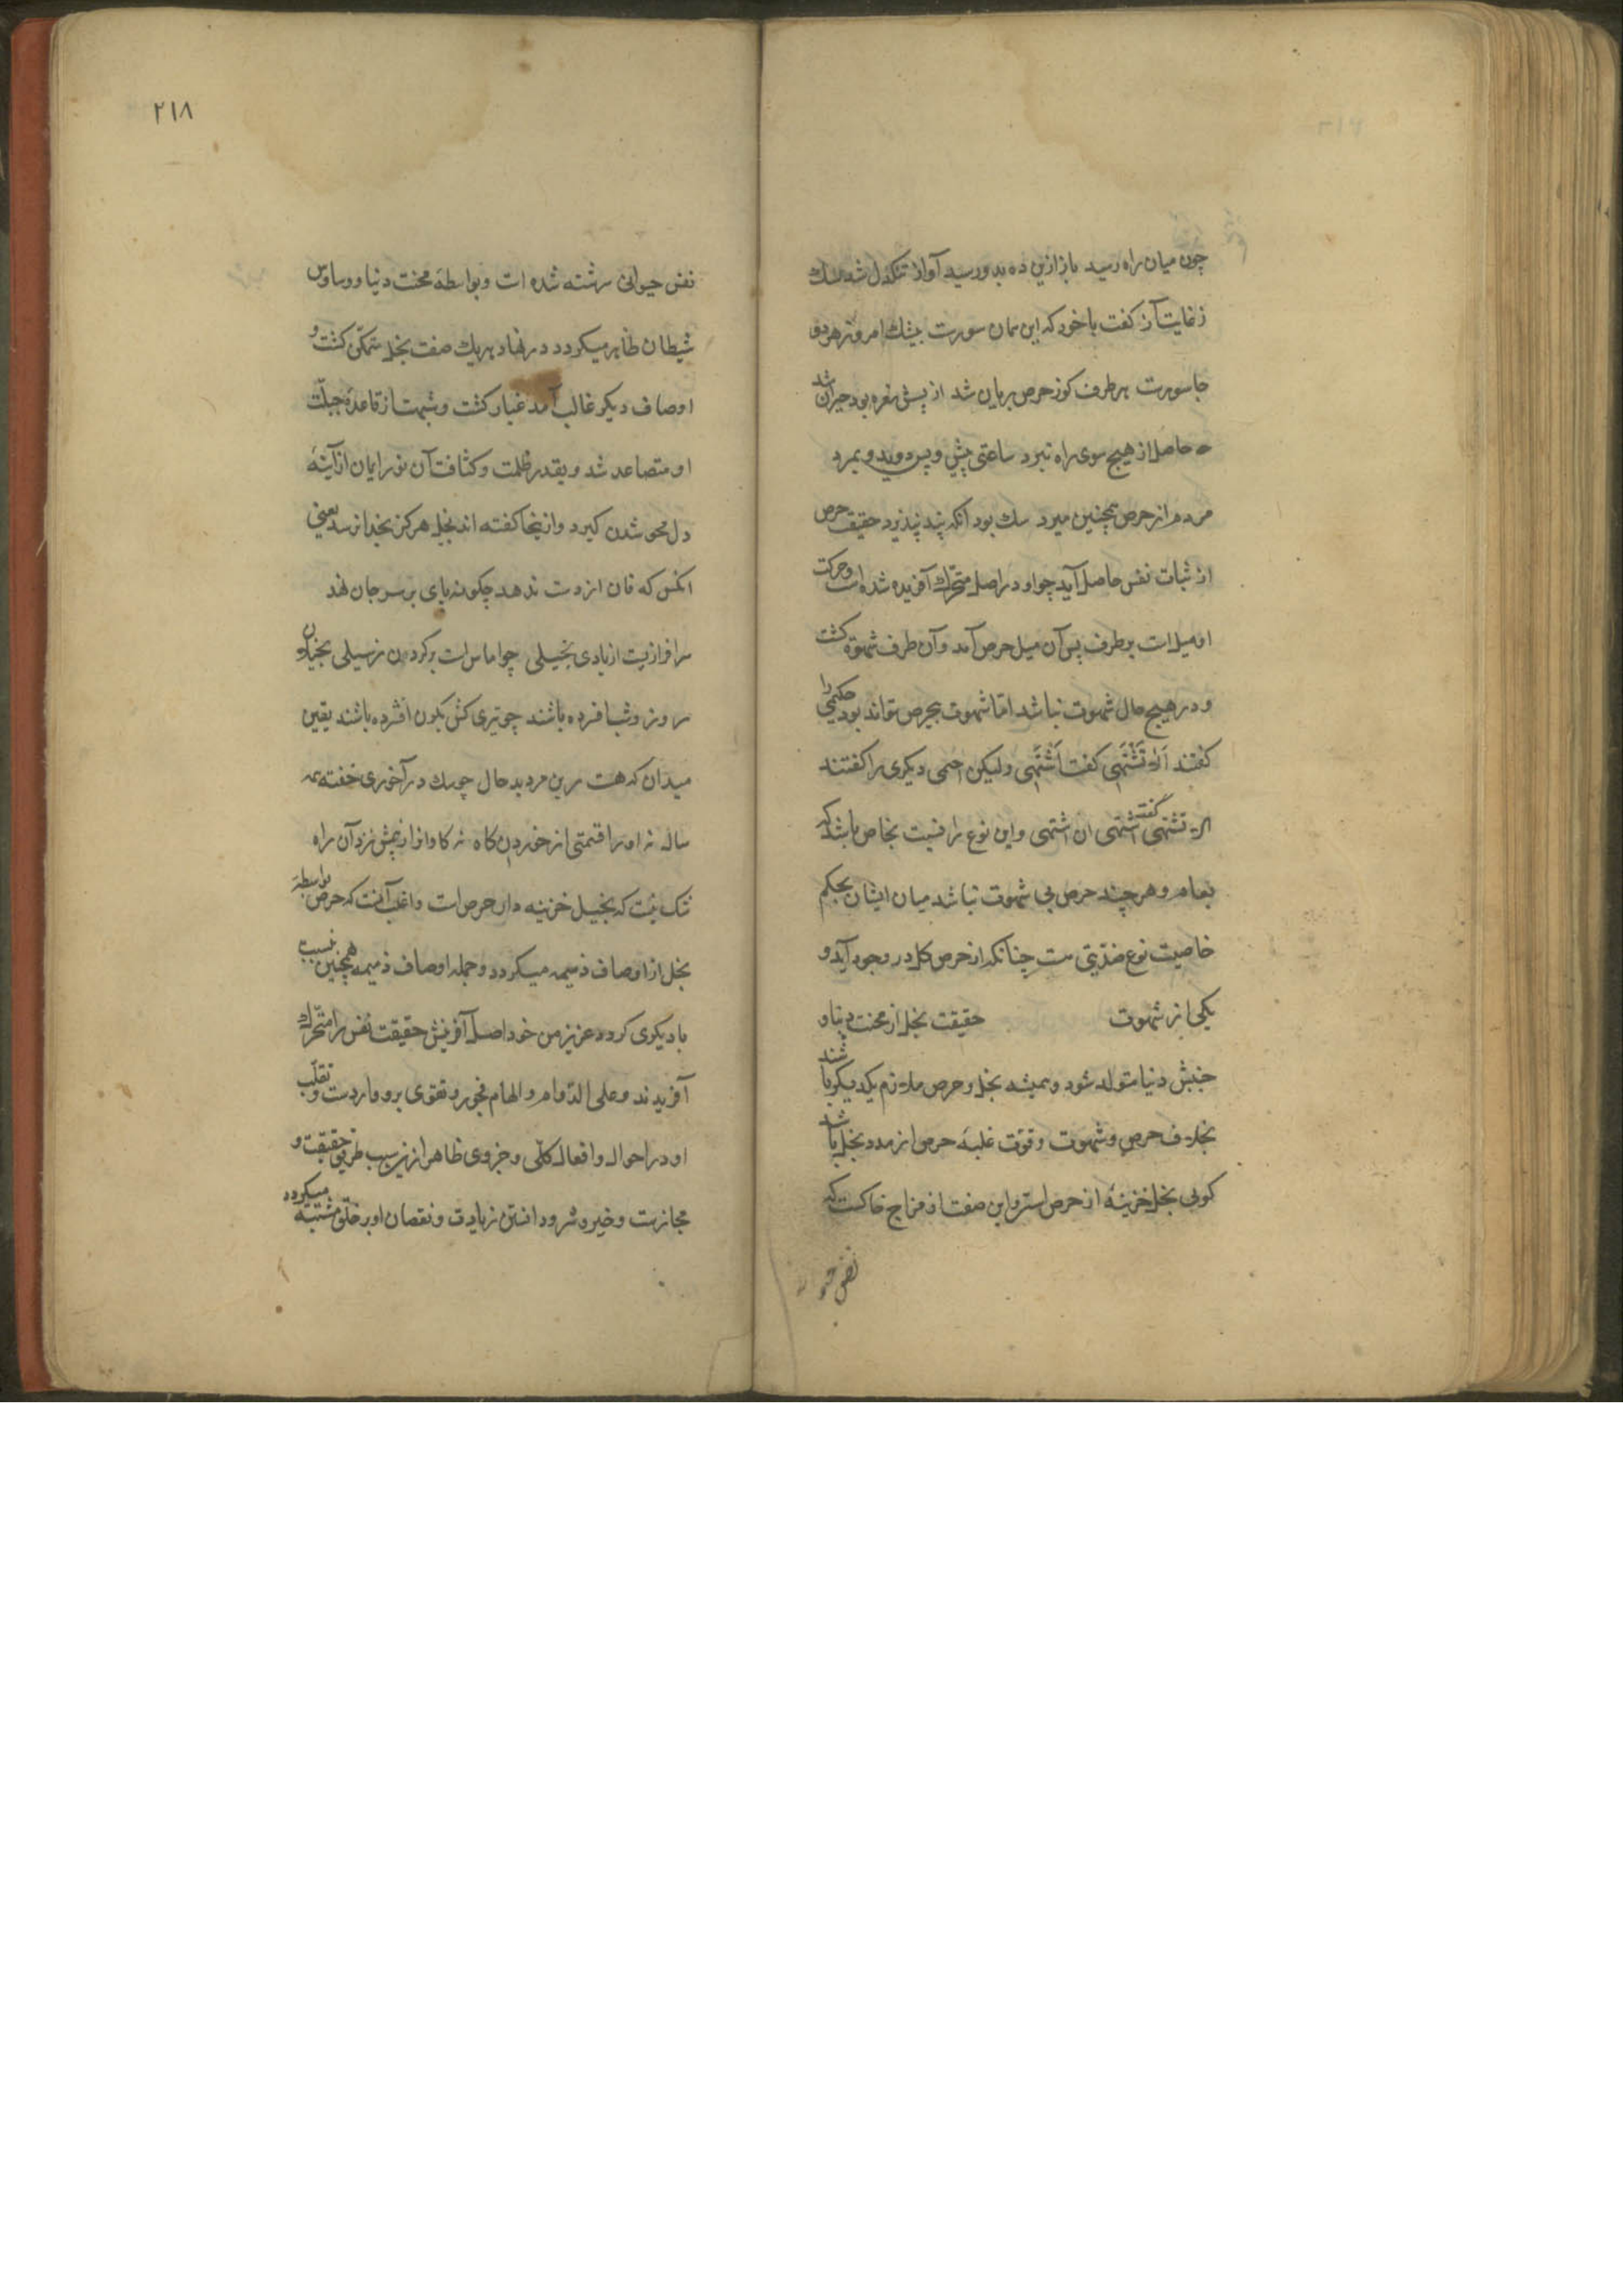 چون میان راه رسید بازازین ده بدو رسید آواز تنکدل شد سک
ز غایت آز کفت باخود که این سمان سورست بیشک امروز هر دو
جا سورست هر طرف کوز حرص بریان شد از پیش نعره بود حیران شد
حاصل از هیچ سوی راه نبرد ساعتی پیش و پس دوید و بمرد
مردم از حرص همچنین میرد سک بود آنکه پند نپذیرد حقیقت حرص
از ثبات نفس حاصل آید چو او در اصل متحرک آفریده شده است و حرکت
او میل است بر طرف پس آن میل حرص آمد و آن طرف شهوة کشت
و در هیچ حال شهوت نباشد اما شهوت بی حرص تواند بود حکیمی را
کفتند الا تَشتَهی کفت اَشتَهی ولیکن احمی دیکری را کفتند
الا تشتهی کفت اشتهی ان اشتهی و این نوع را نسبت بخاص باشد که
بعام و هر چند حرص بی شهوت نباشد میان ایشان بحکم
خاصیت نوع ضدّیتی ست چنانکه از حرص کل در وجود آید و
یکی از شهوت حقیقت بخل از محنت دنیا و
جنبش دنیا متولد شود و همیشه بخل و حرص ملازم یکدیکر باشند
بخلاف حرص و شهوت و قوّت غلبهٔ حرص از مدد بخل باشد
کویی بخل خزینهٔ از حرص است و این صفت از مزاج خاکست که
نفس حیو
۲۱۸
نفس حیوانی سرشته شده است و بواسطهٔ محنت دنیا و وساوس
شیطان ظاهر میکردد در نهاد هر یک صفت بخل متمکّن کشت و
اوصاف دیکر غالب آمد غبار کثت و شبهت از قاعدهٔ جبلّت
او متصاعد شد و بقدر ظلمت و کثافت آن نور ایمان از آینهٔ
دل محو شدن کیرد و از ینجا کفته اند بخیل هرکز بخدا نرسد یعنی
آنکس که نان از دست ندهد چکونه پای بر سر جان نهد
سرافرازیست از یادی بخیلی چو اماس است بر کردن ز سیلی بخیلان
روز و شب افسرده باشند چو تیری کش بکون افشرده باشند یقین
میدان که هست این مرد بد حال چو سک در آخوری خفته همه
ساله نه او را قسمتی از خوردن کاه نه کاوانرا ز بیمش نزد آن راه
شک نیست که بخیل خزینه دار حرص است و اغلب آنست که حرص بواسطهٔ
بخل از اوصاف ذمیمه میکردد و جمله اوصاف ذمیمه همچنین بسبب
با دیکری کردد عزیز من خود اصل آفرینش حقیقت نفس را متحرک
آفریدند و علی الدّوام و الهام فجور و تقوی برو واردست و تقلّب
او در احوال و افعال کلّی و جزوی ظاهر از نیز سبب طریق حقیقت و
مجازست و خیر و شر و دانستن زیادت و نقصان او بر خلق مشتبه میکردد